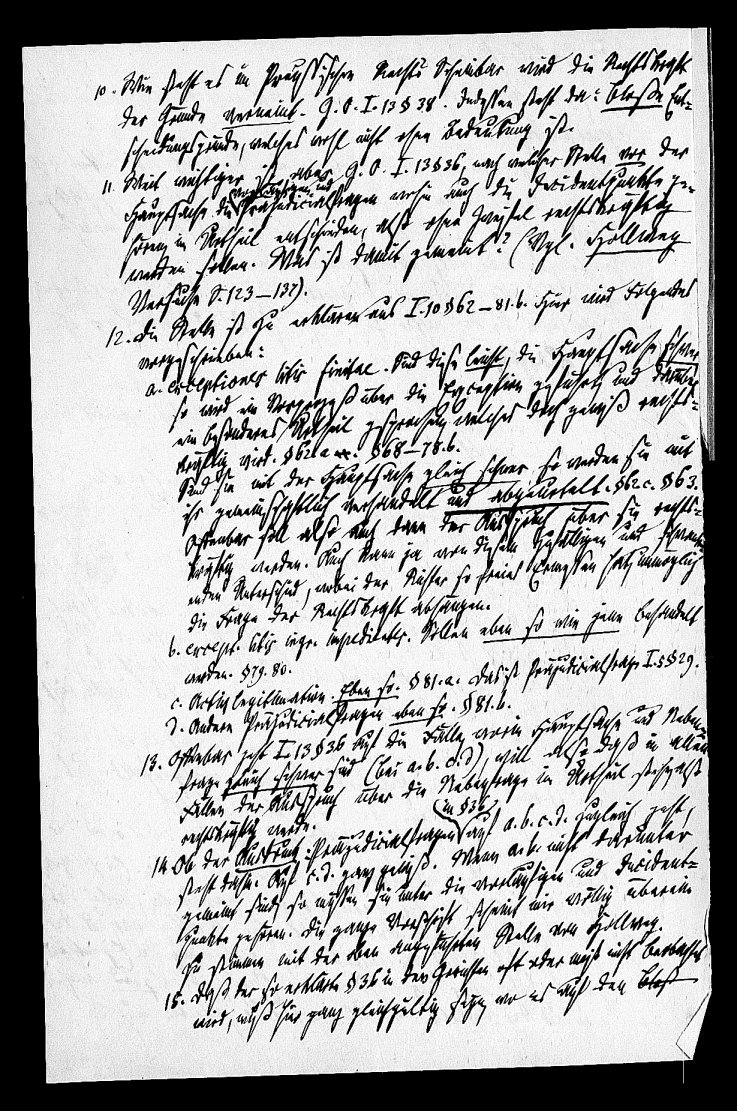 10. Wie steht es im Preußischen Recht? Scheinbar wird die Rechtskraft
der Gründe verneint. G. O. I. 13 § 38. Indessen steht da: bloße Ent-
scheidungsgründe, welches wohl nicht ohne Bedeutung ist.
11. Weit wichtiger ist aber G. O. I. 13 § 36, nach welcher Stelle vor der
Hauptsache die vorläufigen und Präjudicialfragen wohin auch die Decidentpunkte ge-
hören im Urtheil entschieden, also ohne Zweifel rechtskräftig
werden sollen. Was ist damit gemeint? (Vgl. Hollweg
Versuche S. 123–137).
12. Die Stelle ist zu erklären aus I. 10 § 62–81.b. Hier wird Folgendes
vorgeschrieben:
a. exceptiones litis finitae. Sind diese leicht, die Hauptsache schwer
so wird ein Vorprozeß über die Exception geführt, und darüber
ein besonderes Urtheil gesprochen, welches doch gewiß rechts-
kräftig wird. § 62.a § 68–78.b.
Sind sie mit der Hauptsache gleich schwer so werden sie mit
ihr gemeinschaftlich verhandelt und abgeurtelt. § 62.c. § 63.
Offenbar soll also auch dann der Ausspruch über sie rechts-
kräftig werden. Auch kann ja von diesem zufälligen und schwank-
enden Unterschied, wobei der Richter so freies Ermessen hat, unmöglich
die Frage der Rechtskraft abhängen.
b. except. litis ingr. impedientes. Sollen eben so wie jene behandelt
werden. § 79. 80.
c. Activlegitimation. Eben so. § 81.a. Das ist Präjudicialfrage I. 5 § 29.
d. Andere Präjudicialfragen eben so. § 81.b.
13. Offenbar geht I. 13 § 36 auf die Fälle, worin Hauptsache und Neben-
frage gleich schwer sind (bei a. b. c. d), will also daß in allen
Fällen der Ausspruch über die Nebenfrage im Urtheil steht, also
rechtskräftig werde.
14. Ob der Ausdruck: Präjudicialfragen (in § 36) auf a. b. c. d. zugleich geht,
steht dahin. Auf c. d. ganz gewiß. Wenn a. b. nicht darunter
gemeint sind, so müssen sie unter die vorläufigen und Decident-
punkte gehören. Die ganze Vorschrift scheint mir völlig überein
zu stimmen mit der oben angeführten Stelle von Hollweg.
15. Daß der so erklärte § 36 in den Gerichten oft oder meist nicht beobachtet
wird, muß hier ganz gleichgültig seyn, wo es auf den bloß